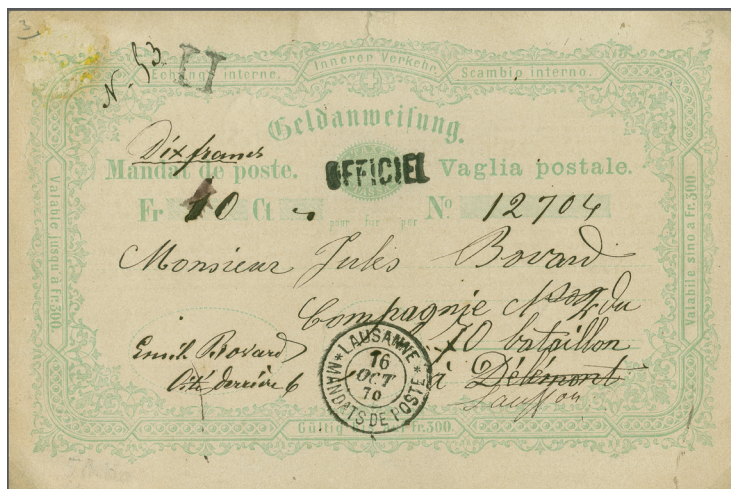 3
3
N. 53
II
Echange interne. Innerer Verkehr. Scambio interno.
Geldanweisung.
Dix francs
Mandat de poste. OFFICIEL Vaglia postale.
Fr 10 Ct No 12704
pour für per
Monsieur Jules Bovard
Compagnie du
70 bataillon
à Délémont
Lauffon
Emil Bovard
Cité derrière 6
LAUSANNE
16
OCT
70
MANDATS DE POSTE
Valable jusqu'à fr. 300.
Valabile sino a Fr. 300.
Gültig Fr. 300.